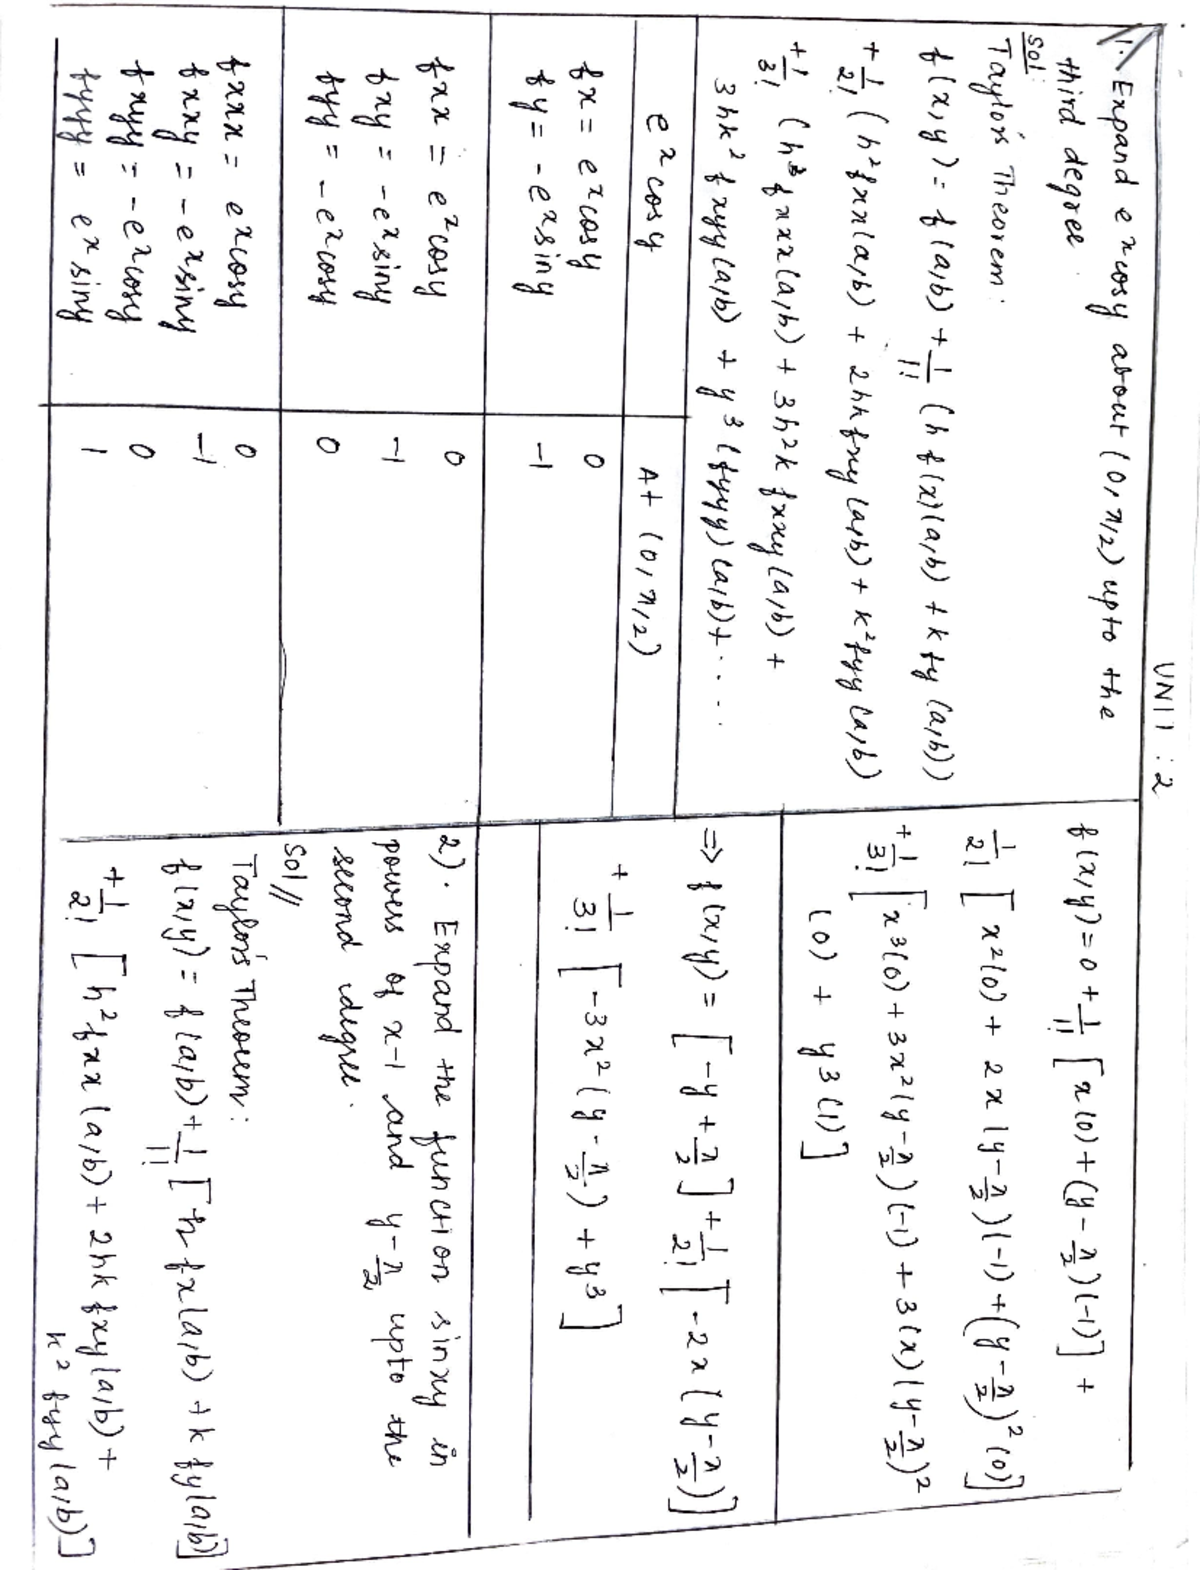 UNIT : 2
1. Expand e^x cosy about (0, π/2) upto the
third degree.
Sol:
Taylor's Theorem:
f(x,y) = f(a,b) + 1/1! (h f(x)(a,b) + k fy (a,b))
+ 1/2! (h² fxx(a,b) + 2hk fxy (a,b) + k² fyy (a,b)
+ 1/3! (h³ fxxx(a,b) + 3h²k fxxy (a,b) +
3hk² fxyy (a,b) + y³ (fyyy) (a,b) + .....
e^x cosy | At (0, π/2)
fx = e^x cosy | 0
fy = -e^x siny | -1
fxx = e^x cosy | 0
fxy = -e^x siny | -1
fyy = -e^x cosy | 0
fxxx = e^x cosy | 0
fxxy = -e^x siny | -1
fxyy = -e^x cosy | 0
fyyy = e^x siny | 1
f(x,y) = 0 + 1/1! [x(0) + (y - π/2)(-1)] +
1/2! [x²(0) + 2x (y - π/2)(-1) + (y - π/2)² (0)]
+ 1/3! [x³(0) + 3x² (y - π/2)(-1) + 3(x) (y - π/2)²
(0) + y³ (1)]
=> f(x,y) = [-y + π/2] + 1/2! [-2x (y - π/2)]
+ 1/3! [-3x² (y - π/2) + y³]
2). Expand the function sinxy in
powers of x-1 and y - π/2 upto the
second degree.
Sol//
Taylor's Theorem:
f(x,y) = f(a,b) + 1/1! [h fx(a,b) + k fy(a,b)]
+ 1/2! [h² fxx (a,b) + 2hk fxy (a,b) +
k² fyy (a,b)]